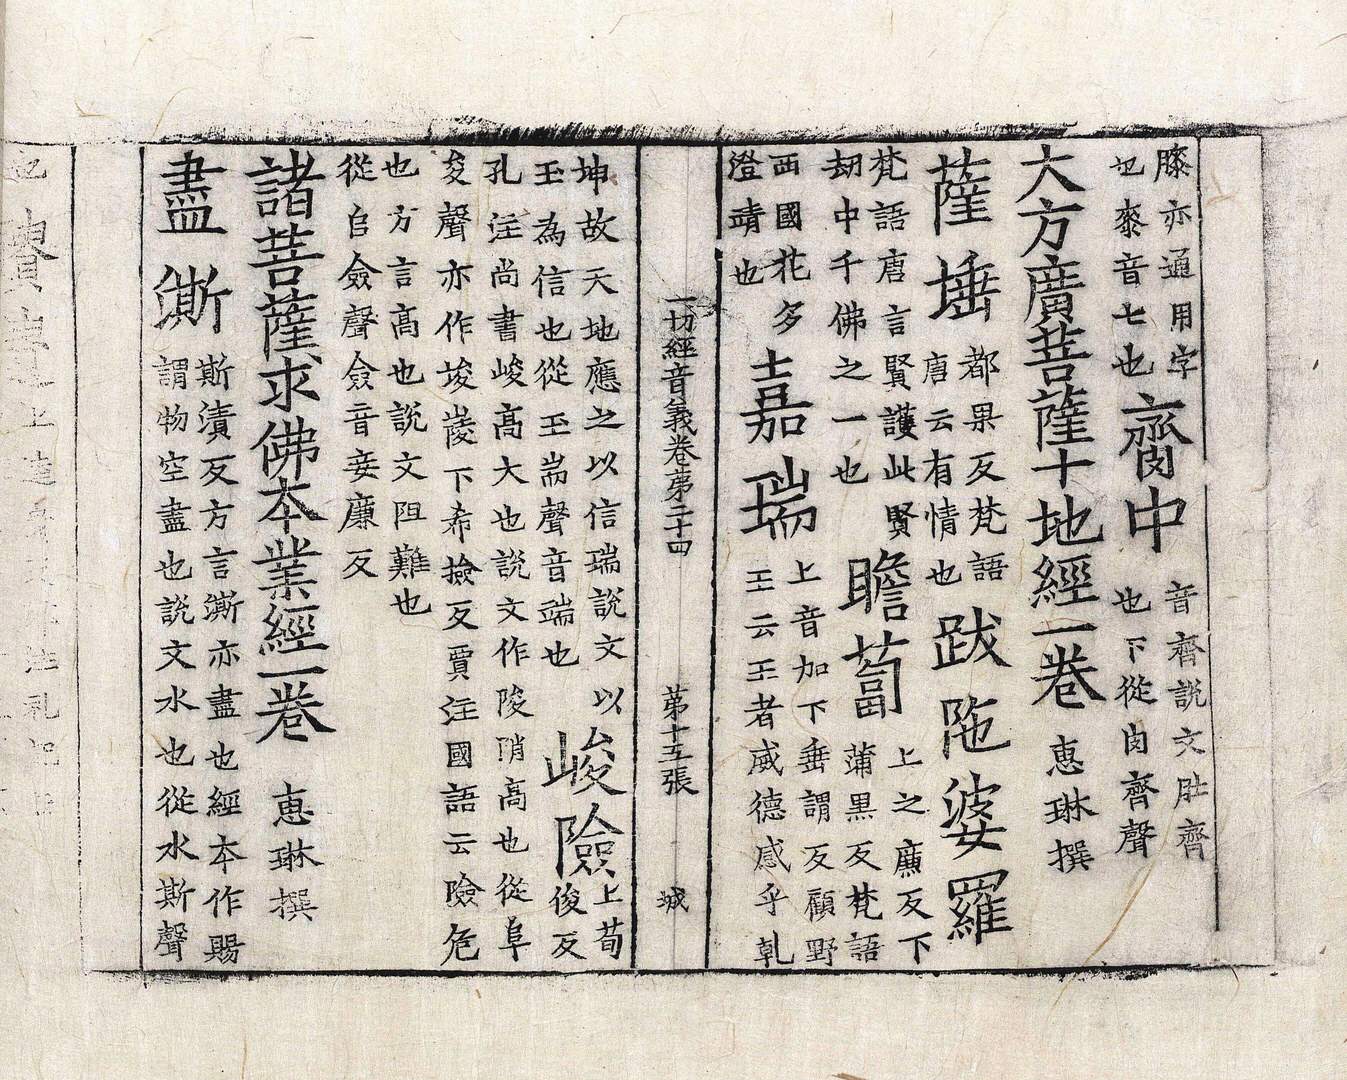 膝亦通用字
也桼音七也
𪗆中
音齊說文肚齊
也下從肉齊聲
大方廣菩薩十地經一卷 惠琳撰
薩埵
都果反梵語
唐云有情也
跋陁婆羅
梵語唐言賢護此賢
劫中千佛之一也
瞻蔔
上之廉反下
蒲黑反梵語
西國花多
澄靖也
嘉瑞
上音加下垂謂反顧野
王云王者威德感乎乹
一切經音義卷苐二十四 苐十五張 城
坤故天地應之以信瑞說文以
玉為信也從玉耑聲音端也
峻險
上荀
俊反
孔注尚書峻高大也說文作陖陗高也從阜
夋聲亦作埈崚下希撿反賈注國語云險危
也方言高也說文阻難也
從𠂤僉聲僉音妾廉反
諸菩薩求佛本業經一卷 惠琳撰
盡澌
斯漬反方言澌亦盡也經本作賜
謂物空盡也說文水也從水斯聲